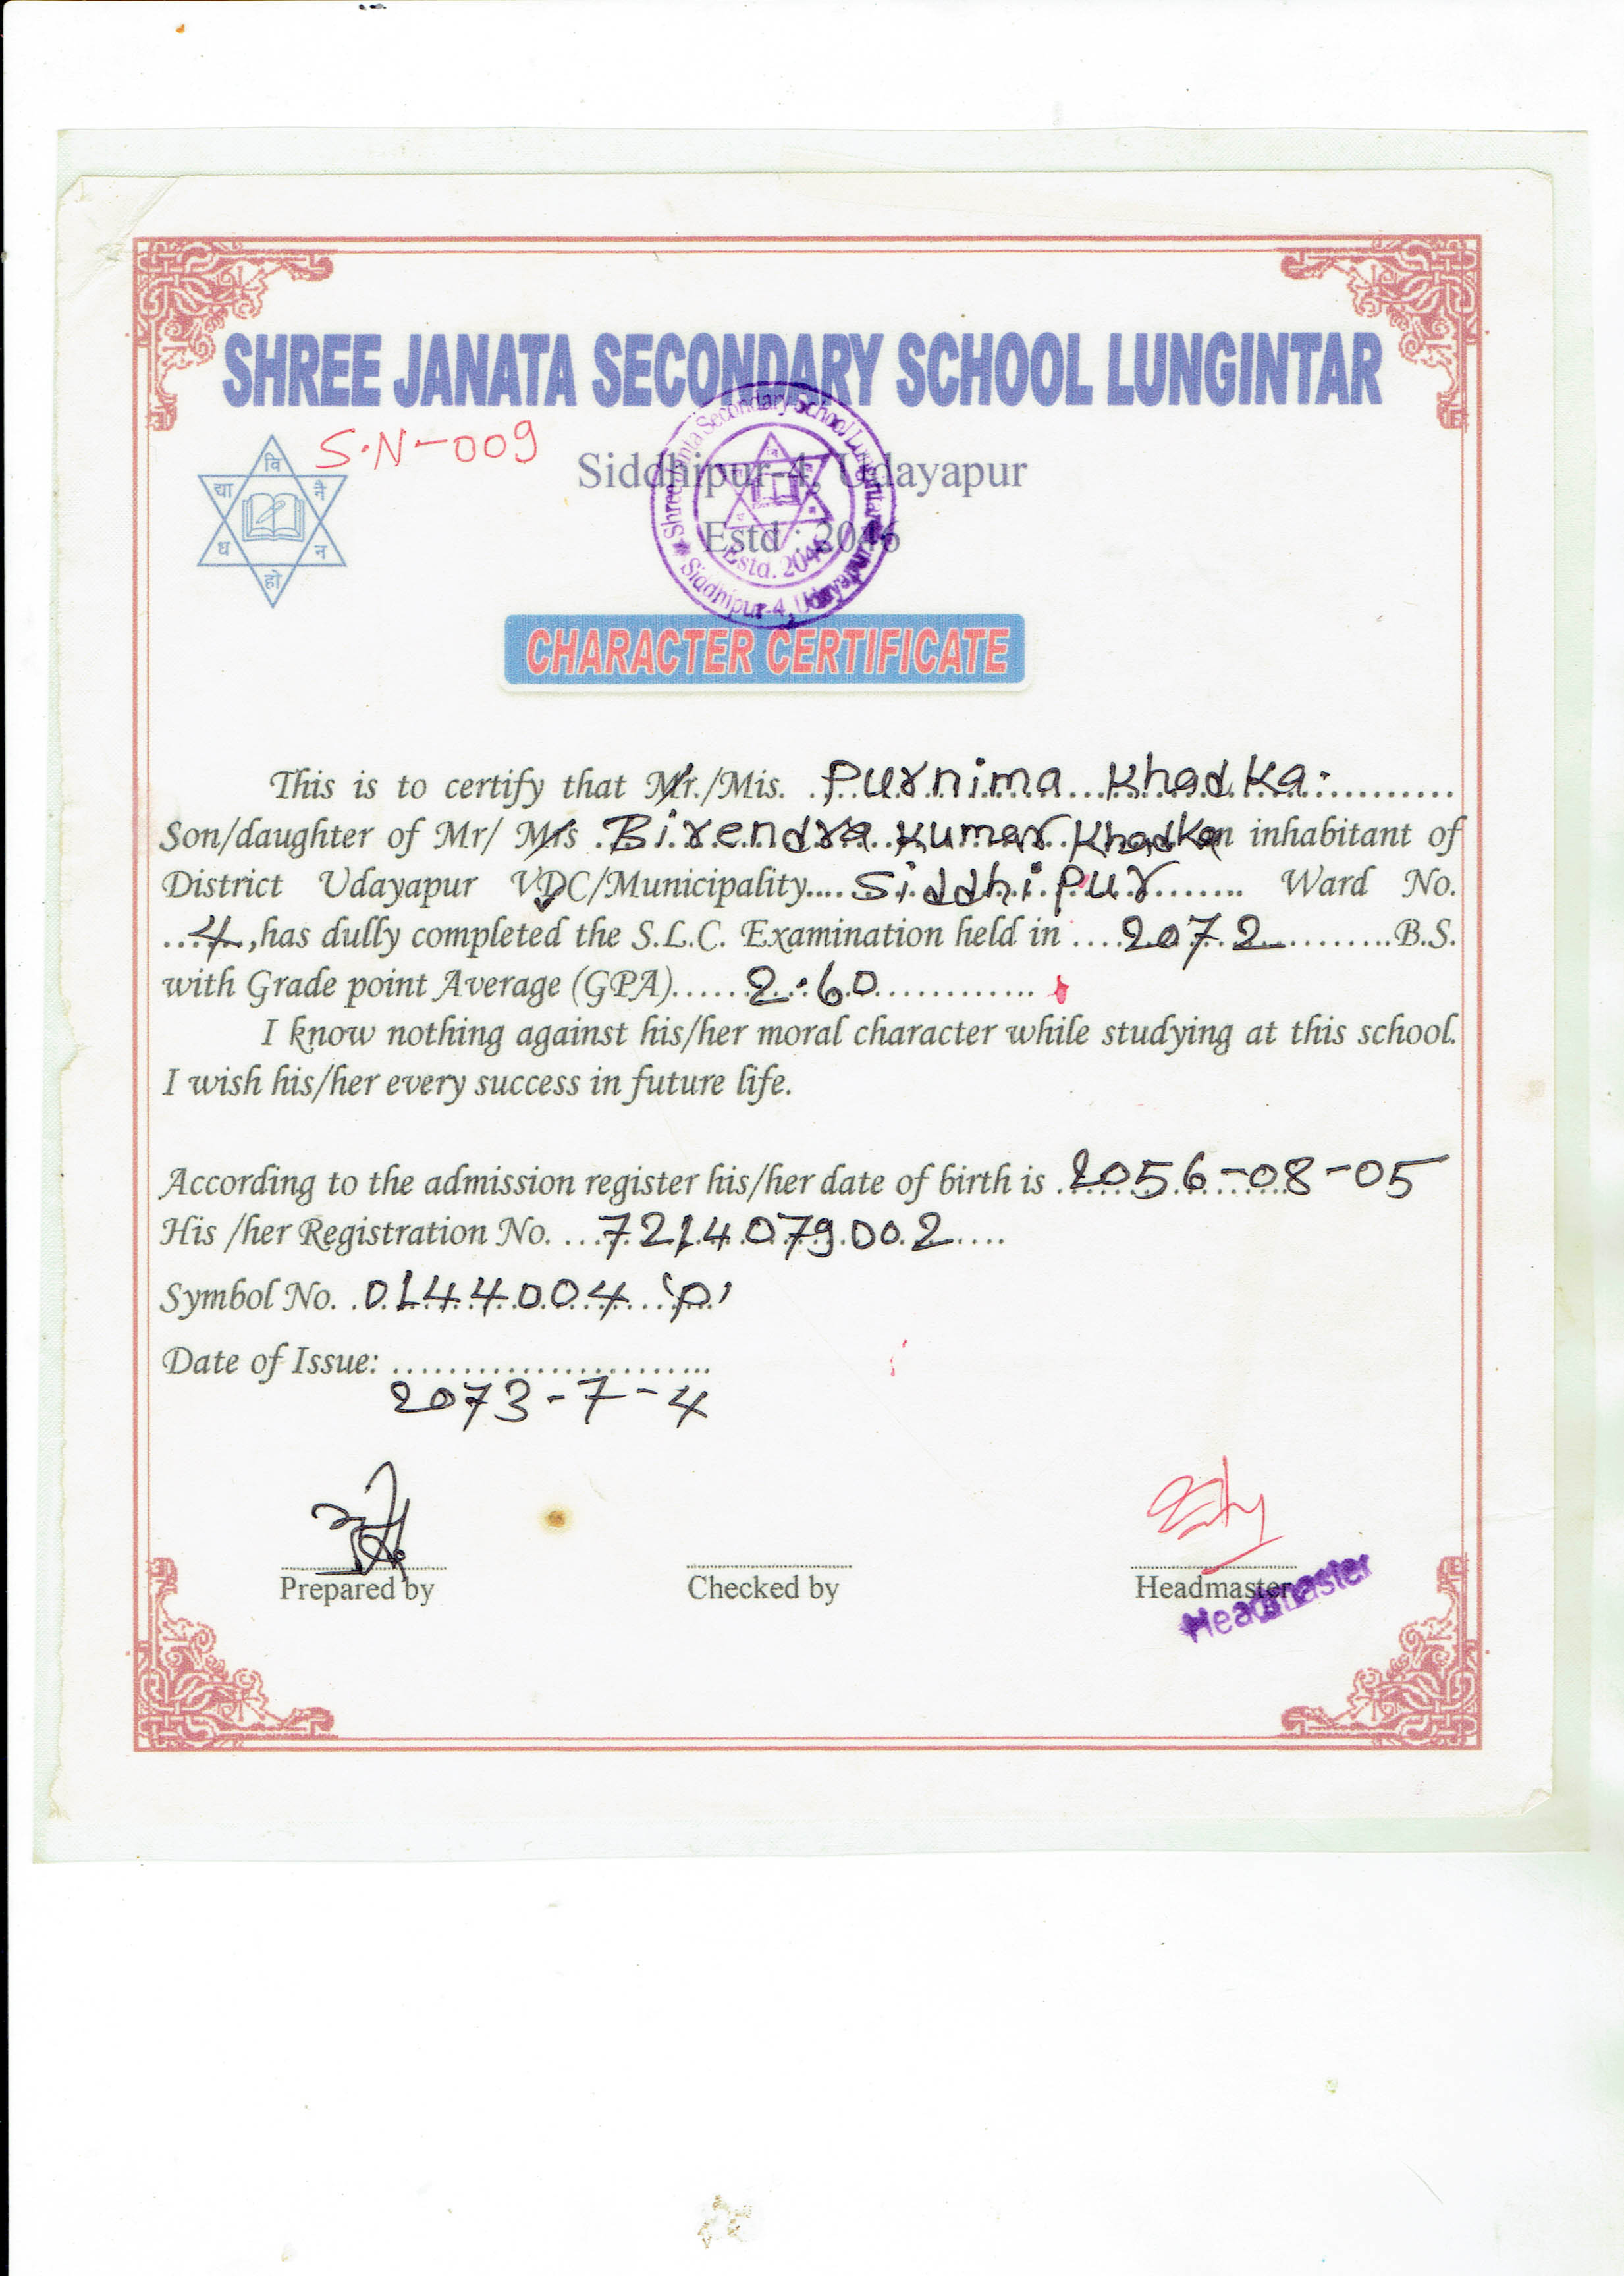 SHREE JANATA SECONDARY SCHOOL LUNGINTAR
S.N-009
Siddhipur-4, Udayapur
Estd : 2046
वि
द्या
नै
ध
न
हो
Shree Janta Secondary School Lungintar
Estd. 2046
Siddhipur-4, Udayapur
CHARACTER CERTIFICATE
This is to certify that Mr./Mis. Purnima Khadka
Son/daughter of Mr/ Mrs Birendra Kumar Khadka an inhabitant of
District Udayapur VDC/Municipality.... Siddhipur ....... Ward No.
...4.,has dully completed the S.L.C. Examination held in ....2072.........B.S.
with Grade point Average (GPA)......2.60.............
I know nothing against his/her moral character while studying at this school.
I wish his/her every success in future life.
According to the admission register his/her date of birth is 2056-08-05
His /her Registration No. ...7214079002....
Symbol No. .0144004 'P'
Date of Issue: .........................
2073-7-4
Prepared by
Checked by
Headmaster
Headmaster